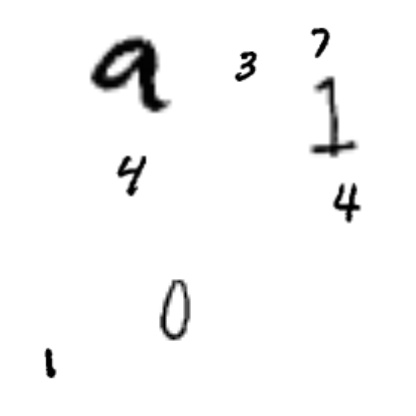 9 3 7
1
4
4
0
1